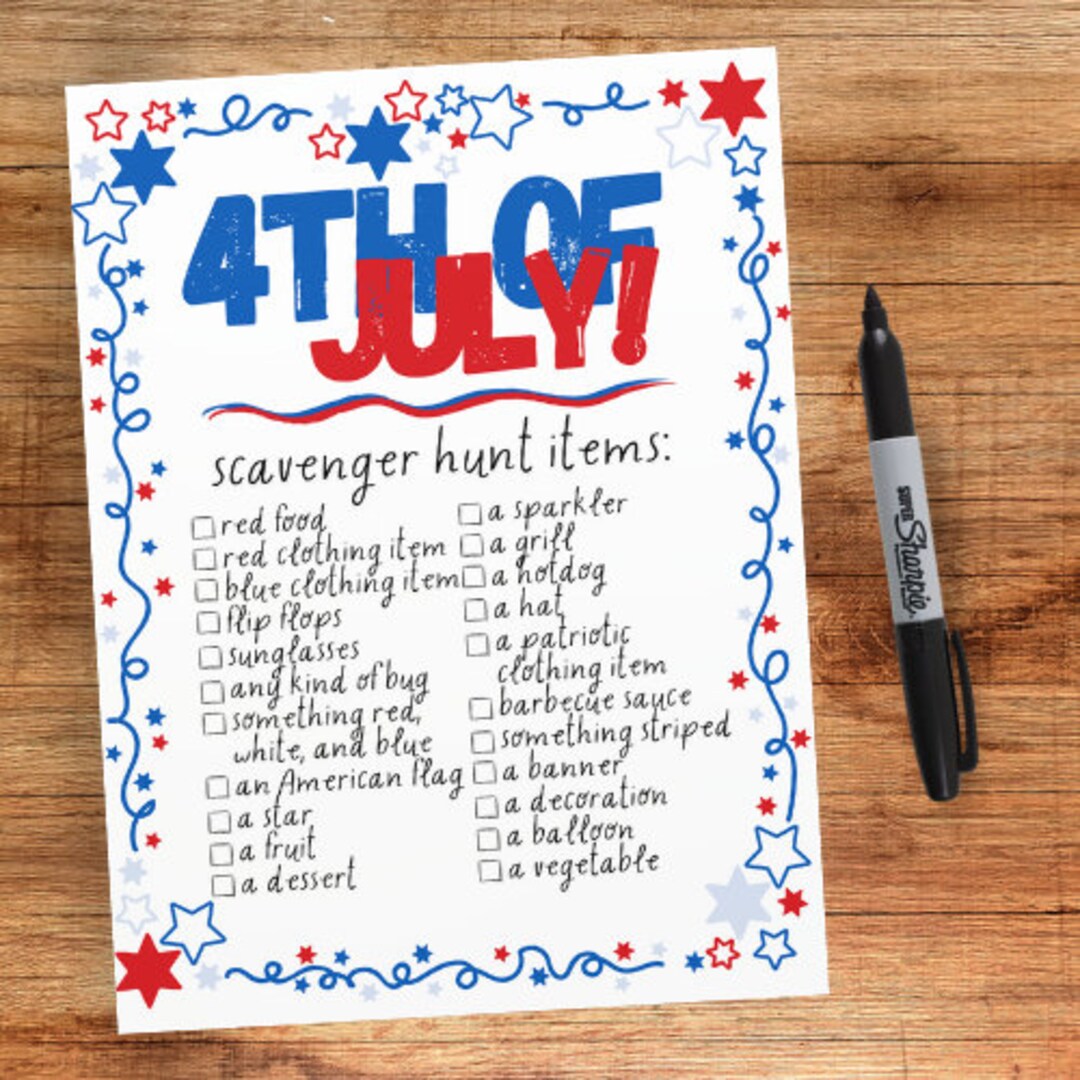 4TH OF
JULY!
scavenger hunt items:
red food
red clothing item
blue clothing item
flip flops
sunglasses
any kind of bug
something red,
white, and blue
an American flag
a star
a fruit
a dessert
a sparkler
a grill
a hotdog
a hat
a patriotic
clothing item
barbecue sauce
something striped
a banner
a decoration
a balloon
a vegetable
SUPER Sharpie